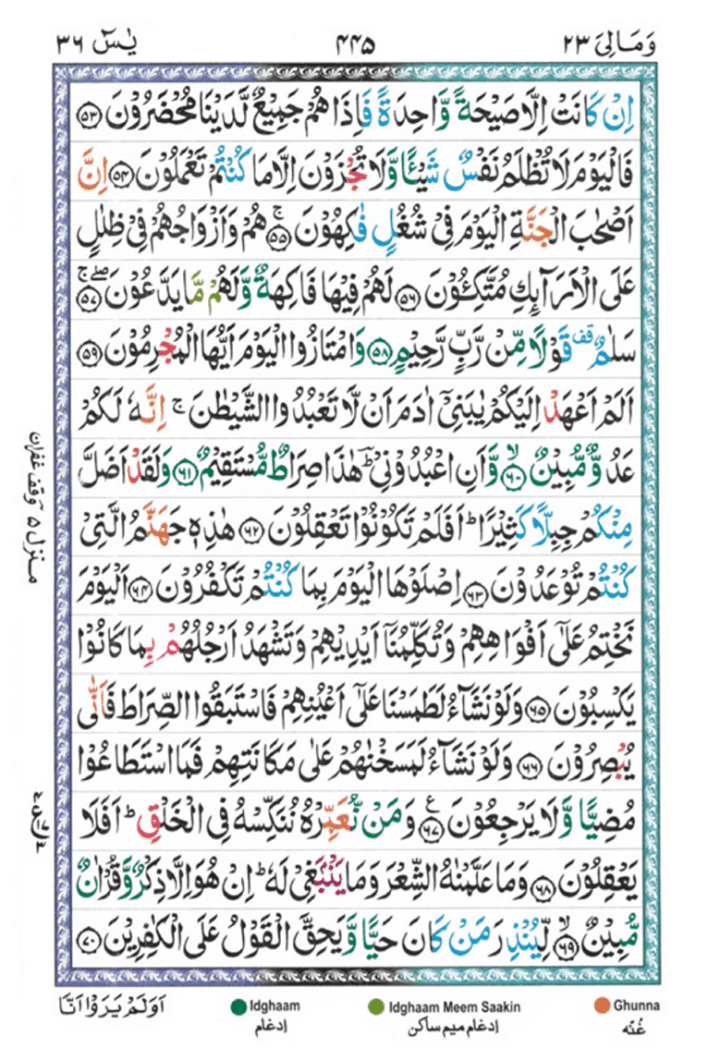 وَمَالِىَ ٢٣
۴۴۵
يٰسٓ ٣٦
اِنْ كَانَتْ اِلَّا صَيْحَةً وَّاحِدَةً فَاِذَا هُمْ جَمِيْعٌ لَّدَيْنَا مُحْضَرُوْنَ ﴿۵۳﴾
فَالْيَوْمَ لَا تُظْلَمُ نَفْسٌ شَيْـًٔا وَّلَا تُجْزَوْنَ اِلَّا مَا كُنْتُمْ تَعْمَلُوْنَ ﴿۵۴﴾ اِنَّ
اَصْحٰبَ الْجَنَّةِ الْيَوْمَ فِىْ شُغُلٍ فٰكِهُوْنَ ۚ﴿۵۵﴾ هُمْ وَاَزْوَاجُهُمْ فِىْ ظِلٰلٍ
عَلَى الْاَرَآئِكِ مُتَّكِـُٔوْنَ ﴿۵۶﴾ لَهُمْ فِيْهَا فَاكِهَةٌ وَّلَهُمْ مَّا يَدَّعُوْنَ ۖۚ﴿۵۷﴾
سَلٰمٌ قف قَوْلًا مِّنْ رَّبٍّ رَّحِيْمٍ ﴿۵۸﴾ وَامْتَازُوا الْيَوْمَ اَيُّهَا الْمُجْرِمُوْنَ ﴿۵۹﴾
اَلَمْ اَعْهَدْ اِلَيْكُمْ يٰبَنِىْٓ اٰدَمَ اَنْ لَّا تَعْبُدُوا الشَّيْطٰنَ ۚ اِنَّهٗ لَكُمْ
عَدُوٌّ مُّبِيْنٌ ۙ﴿۶۰﴾ وَّاَنِ اعْبُدُوْنِىْ ؕ هٰذَا صِرَاطٌ مُّسْتَقِيْمٌ ﴿۶۱﴾ وَلَقَدْ اَضَلَّ
مِنْكُمْ جِبِلًّا كَثِيْرًا ؕ اَفَلَمْ تَكُوْنُوْا تَعْقِلُوْنَ ﴿۶۲﴾ هٰذِهٖ جَهَنَّمُ الَّتِىْ
كُنْتُمْ تُوْعَدُوْنَ ﴿۶۳﴾ اِصْلَوْهَا الْيَوْمَ بِمَا كُنْتُمْ تَكْفُرُوْنَ ﴿۶۴﴾ اَلْيَوْمَ
نَخْتِمُ عَلٰٓى اَفْوَاهِهِمْ وَتُكَلِّمُنَاۤ اَيْدِيْهِمْ وَتَشْهَدُ اَرْجُلُهُمْ بِمَا كَانُوْا
يَكْسِبُوْنَ ﴿۶۵﴾ وَلَوْ نَشَآءُ لَطَمَسْنَا عَلٰٓى اَعْيُنِهِمْ فَاسْتَبَقُوا الصِّرَاطَ فَاَنّٰى
يُبْصِرُوْنَ ﴿۶۶﴾ وَلَوْ نَشَآءُ لَمَسَخْنٰهُمْ عَلٰى مَكَانَتِهِمْ فَمَا اسْتَطَاعُوْا
مُضِيًّا وَّلَا يَرْجِعُوْنَ ﴿۶۷﴾ع وَمَنْ نُّعَمِّرْهُ نُنَكِّسْهُ فِى الْخَلْقِ ؕ اَفَلَا
يَعْقِلُوْنَ ﴿۶۸﴾ وَمَا عَلَّمْنٰهُ الشِّعْرَ وَمَا يَنْۢبَغِىْ لَهٗ ؕ اِنْ هُوَ اِلَّا ذِكْرٌ وَّقُرْاٰنٌ
مُّبِيْنٌ ۙ﴿۶۹﴾ لِّيُنْذِرَ مَنْ كَانَ حَيًّا وَّيَحِقَّ الْقَوْلُ عَلَى الْكٰفِرِيْنَ ﴿۷۰﴾
منزل ۵ وقف غفران
اَوَلَمْ يَرَوْا اَنَّا
Idghaam
ادغام
Idghaam Meem Saakin
ادغام میم ساکن
Ghunna
غُنّه